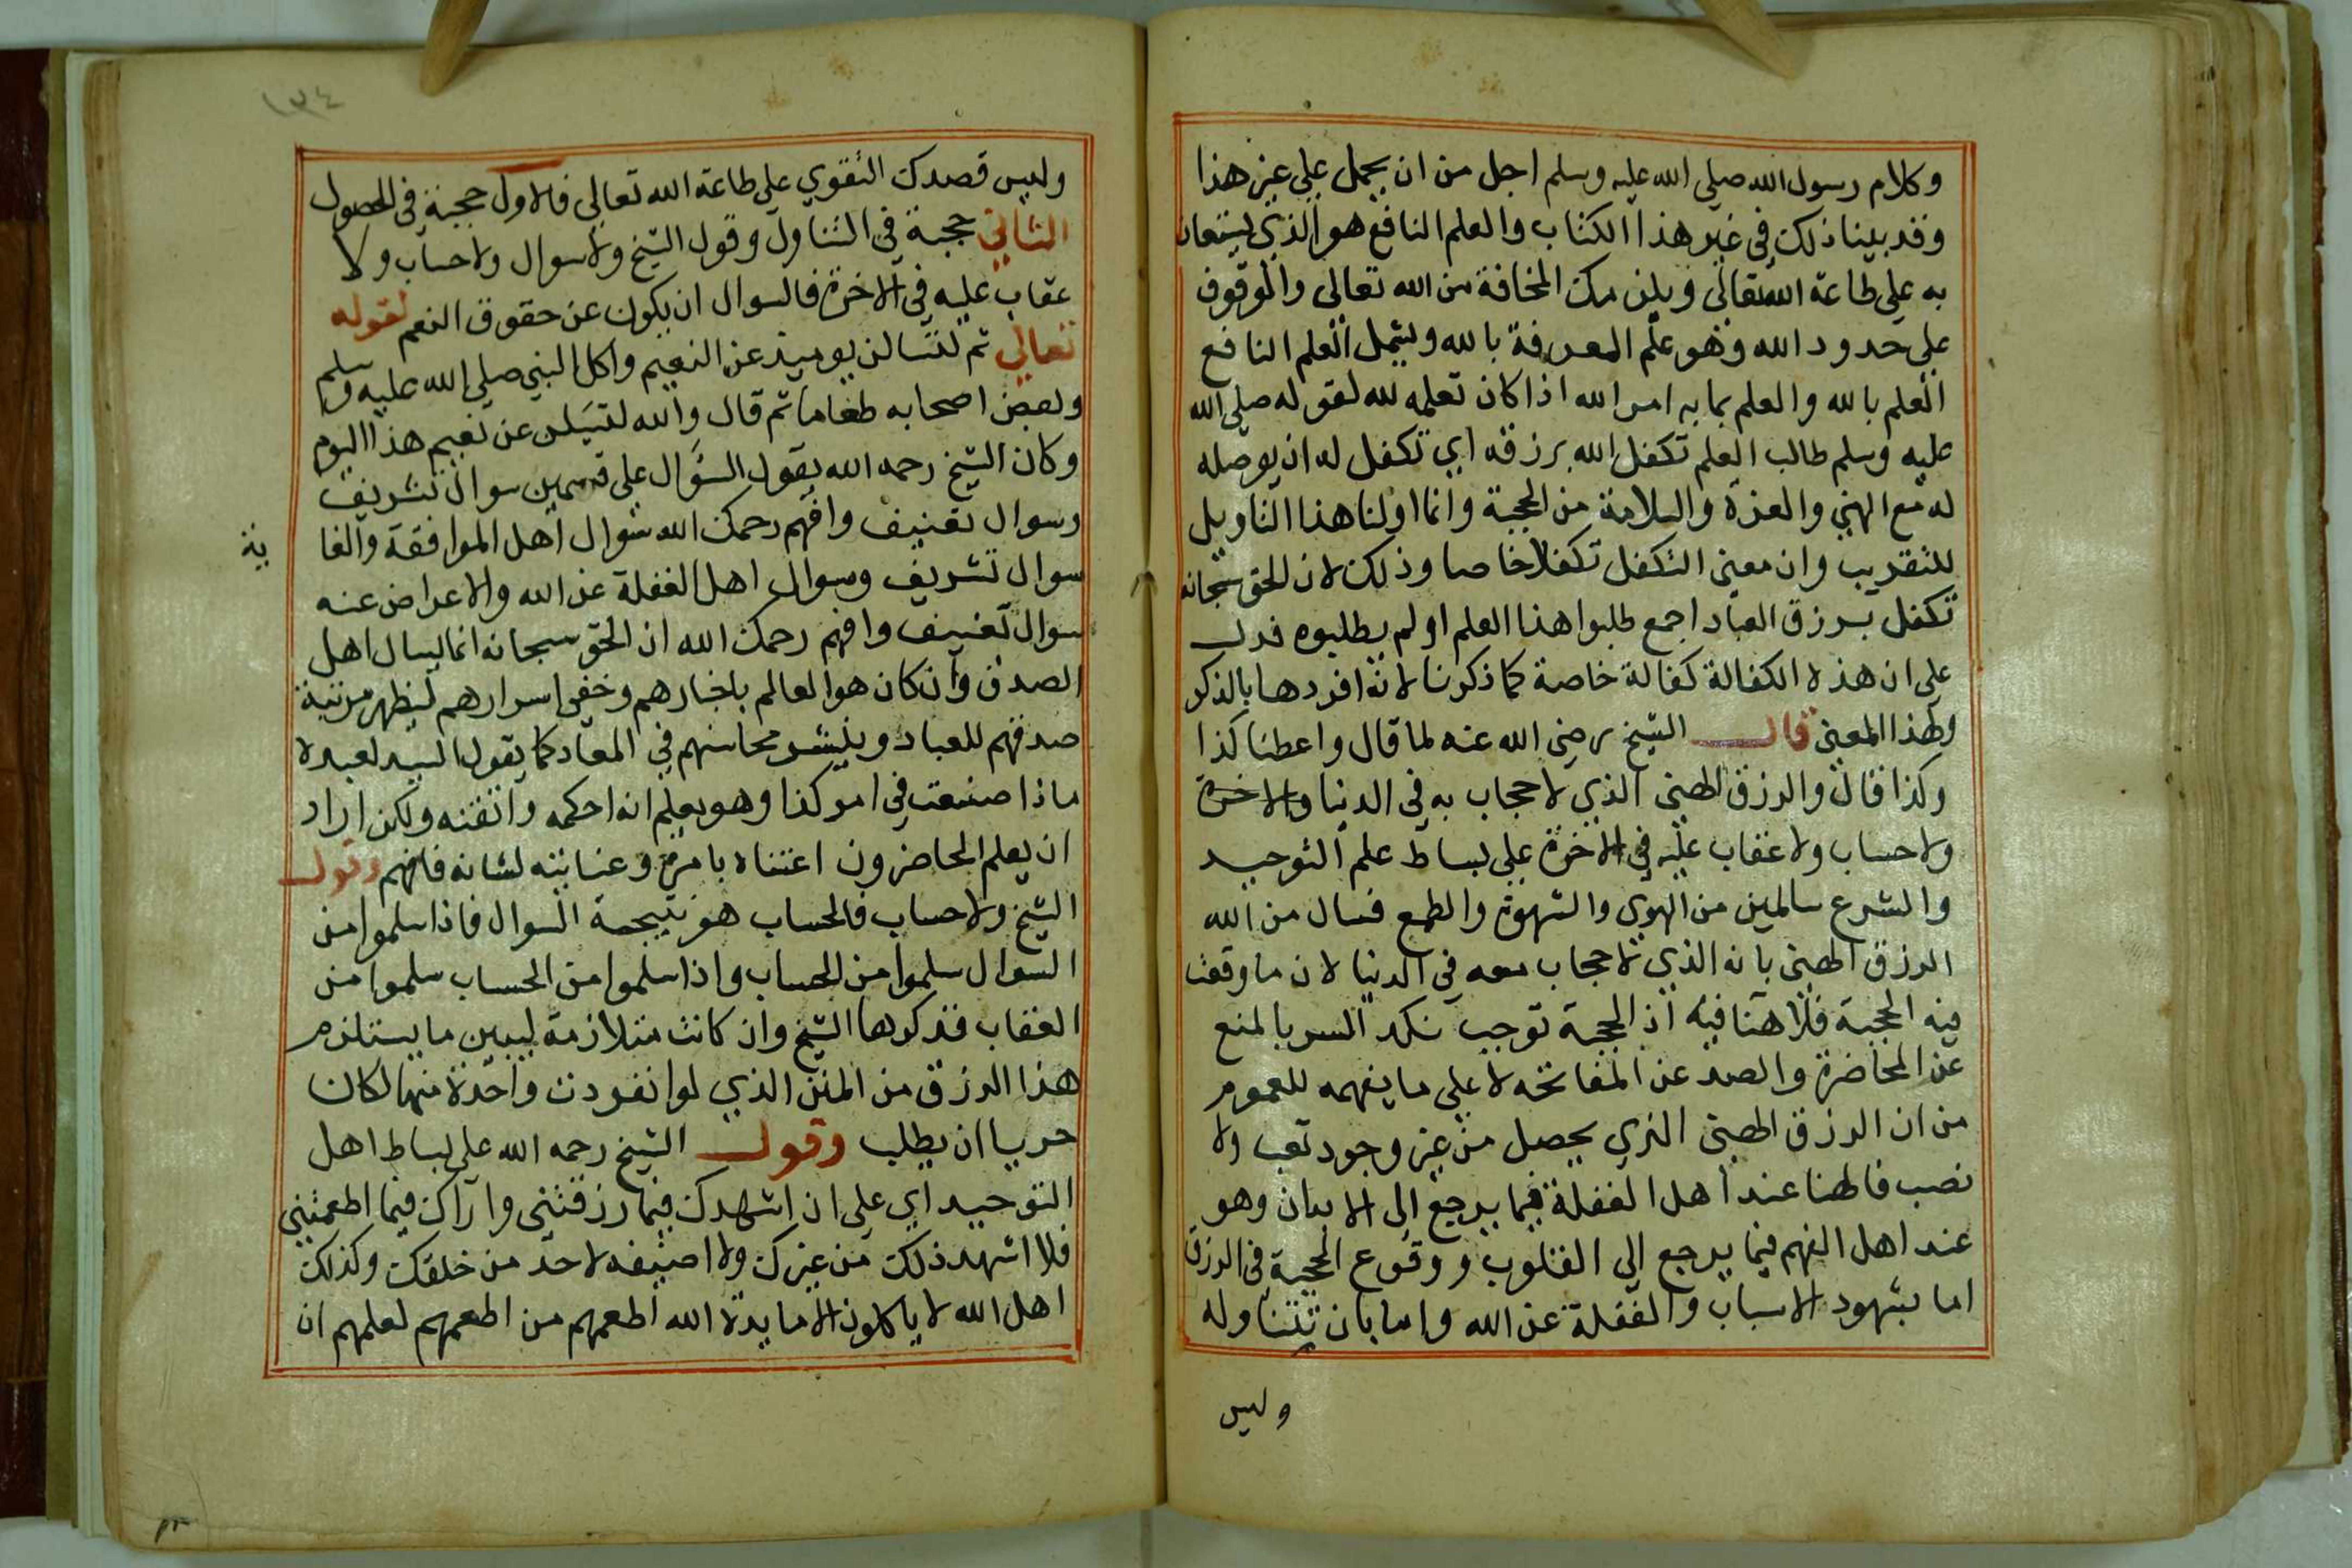 وكلام رسول الله صلي الله عليه وسلم اجل من ان يحمل علي غير هذا
وقد بينا ذلك في غير هذا الكتاب والعلم النافع هو الذي يستعان
به علي طاعة الله تعالي ويلزمك المخافة من الله تعالي والوقوف
علي حدود الله وهو علم المعرفة بالله ويشمل العلم النافع
العلم بالله والعلم بما به امر الله اذا كان تعلمه لله لقوله صلي الله
عليه وسلم طالب العلم تكفل الله برزقه اي تكفل له ان يوصله
له مع الهني والعزة والسلامة من الحجبة وانما اولنا هذا التاويل
للتقريب وان معني التكفل تكفلا خاصا وذلك لان الحق سبحانه
تكفل برزق العباد اجمع طلبوا هذا العلم او لم يطلبوه فدل
علي ان هذه الكفالة كفالة خاصة كما ذكرنا لانه افردها بالذكر
ولهذا المعني قال الشيخ رضي الله عنه لما قال واعطنا كذا
وكذا قال والرزق الهني الذي لا حجاب به في الدنيا والاخرة
ولا حساب ولا عقاب عليه في الاخرة علي بساط علم التوحيد
والشرع سالمين من الهوي والشهوة والطمع فسال من الله
الرزق الهني بانه الذي لا حجاب معه في الدنيا لان ما وقعت
فيه الحجبة فلا هنا فيه اذ الحجبة توجب نكد السر بالمنع
عن المحاضرة والصد عن المفاتحه لا علي ما يفهمه للعموم
من ان الرزق الهني الذي يحصل من غير وجود تعب ولا
نصب فالهنا عند اهل الغفلة فيما يرجع الي الابدان وهو
عند اهل الفهم فيما يرجع الي القلوب ووقوع الحجبة في الرزق
اما بشهود الاسباب والغفلة عن الله واما بان تتناوله
وليس
١٣٤
وليس قصدك التقوي علي طاعة الله تعالي فالاول حجبة في الحصول
الثاني حجبة في التناول وقول الشيخ ولا سوال ولا حساب ولا
عقاب عليه في الاخرة فالسوال ان يكون عن حقوق النعم لقوله
تعالي ثم لتسالن يوميذ عن النعيم واكل النبي صلي الله عليه وسلم
وبعض اصحابه طعاما ثم قال والله لتسئلن عن نعيم هذا اليوم
وكان الشيخ رحمه الله يقول السؤال علي قسمين سوال تشريف
وسوال تعنيف وافهم رحمك الله سوال اهل الموافقة والغا
ية
سوال تشريف وسوال اهل الغفلة عن الله والاعراض عنه
سوال تعنيف وافهم رحمك الله ان الحق سبحانه انما يسال اهل
الصدق وان كان هو العالم باخبارهم وخفي اسرارهم ليظهر مرتبة
صدقهم للعباد وينشر محاسنهم في المعاد كما يقول السيد لعبده
ماذا صنعت في امر كذا وهو يعلم انه احكمه واتقنه ولكن اراد
ان يعلم الحاضرون اعتناه بامره وعنايته لشانه فافهم وقول
الشيخ ولا حساب فالحساب هو نتيجة السوال فاذا سلموا من
السوال سلموا من الحساب واذا سلموا من الحساب سلموا من
العقاب فذكرها الشيخ وان كانت متلازمة ليبين ما يستلزم
هذا الرزق من المنن الذي لو انفردت واحدة منها لكان
حريا ان يطلب وقول الشيخ رحمه الله علي بساط اهل
التوحيد اي علي ان اشهدك فيما رزقتني واراك فيما اطعمتني
فلا اشهد ذلك من غيرك ولا اضيفه لاحد من خلقك وكذلك
اهل الله لا ياكلون الا مايدة الله اطعمهم من اطعمهم لعلمهم ان